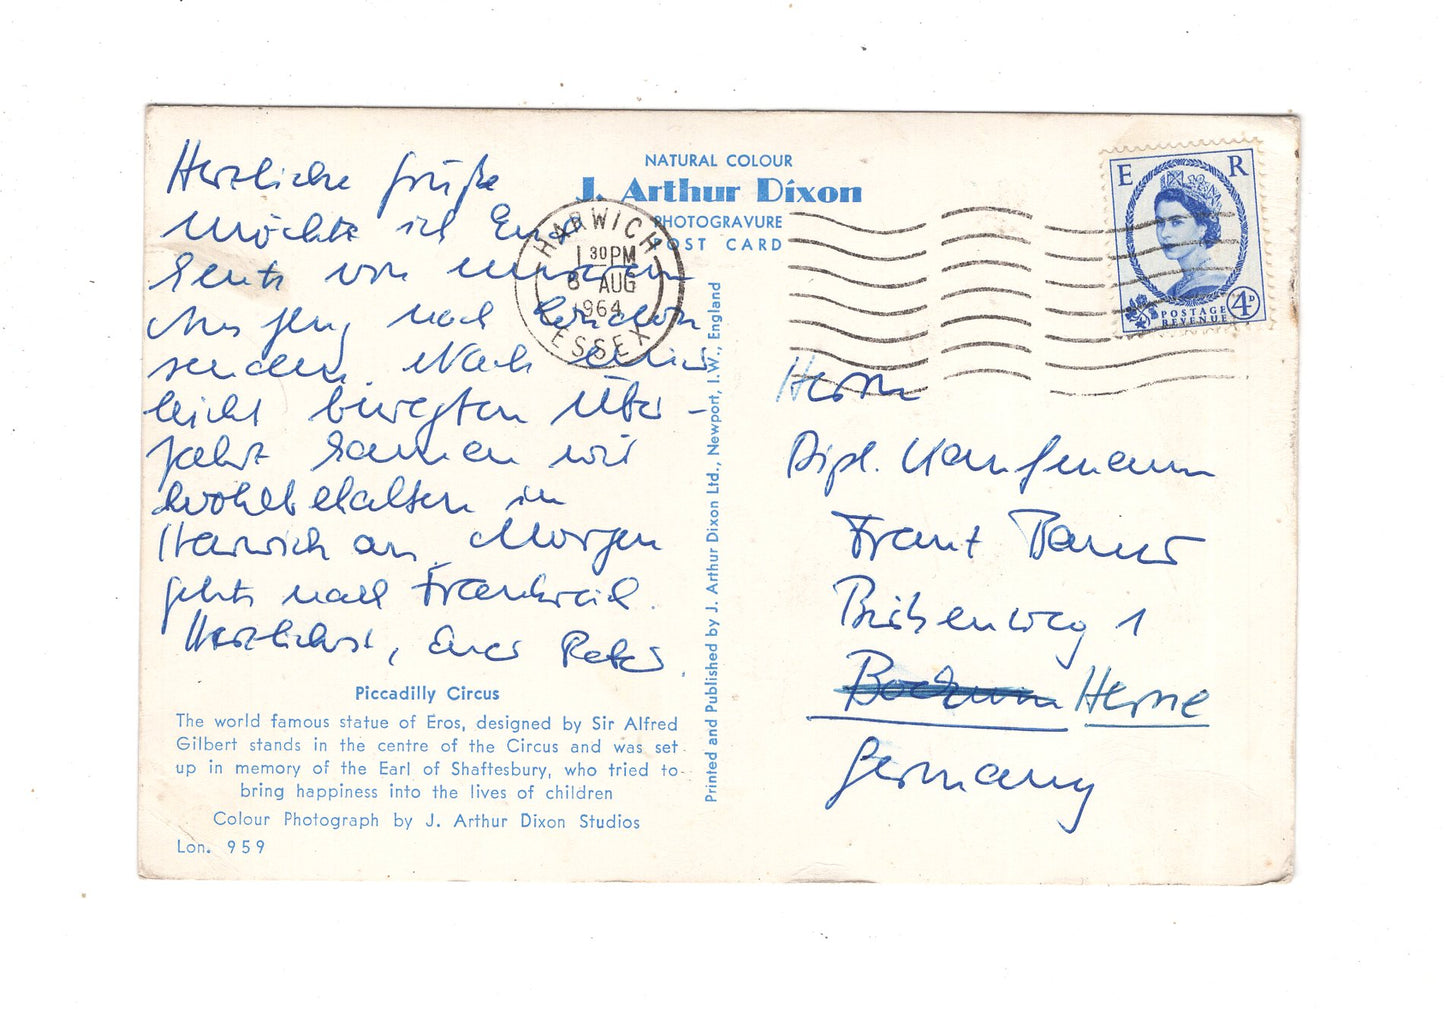 Herzliche Grüße
möchte ich Euch
heute von unserem
Ausflug nach London
senden. Nach einer
leicht bewegten Über-
fahrt kamen wir
wohlbehalten in
Harwich an. Morgen
geht's nach Frankreich.
Herzlichst, Euer Peter.
Piccadilly Circus
The world famous statue of Eros, designed by Sir Alfred
Gilbert stands in the centre of the Circus and was set
up in memory of the Earl of Shaftesbury, who tried to
bring happiness into the lives of children
Colour Photograph by J. Arthur Dixon Studios
Lon. 959
NATURAL COLOUR
J. Arthur Dixon
PHOTOGRAVURE
POST CARD
HARWICH
1 30 PM
8 AUG
1964
ESSEX
Printed and Published by J. Arthur Dixon Ltd., Newport, I.W., England
E R
POSTAGE
REVENUE
4D
Herrn
Dipl. Kaufmann
Franz
1
Bochum Herne
Germany